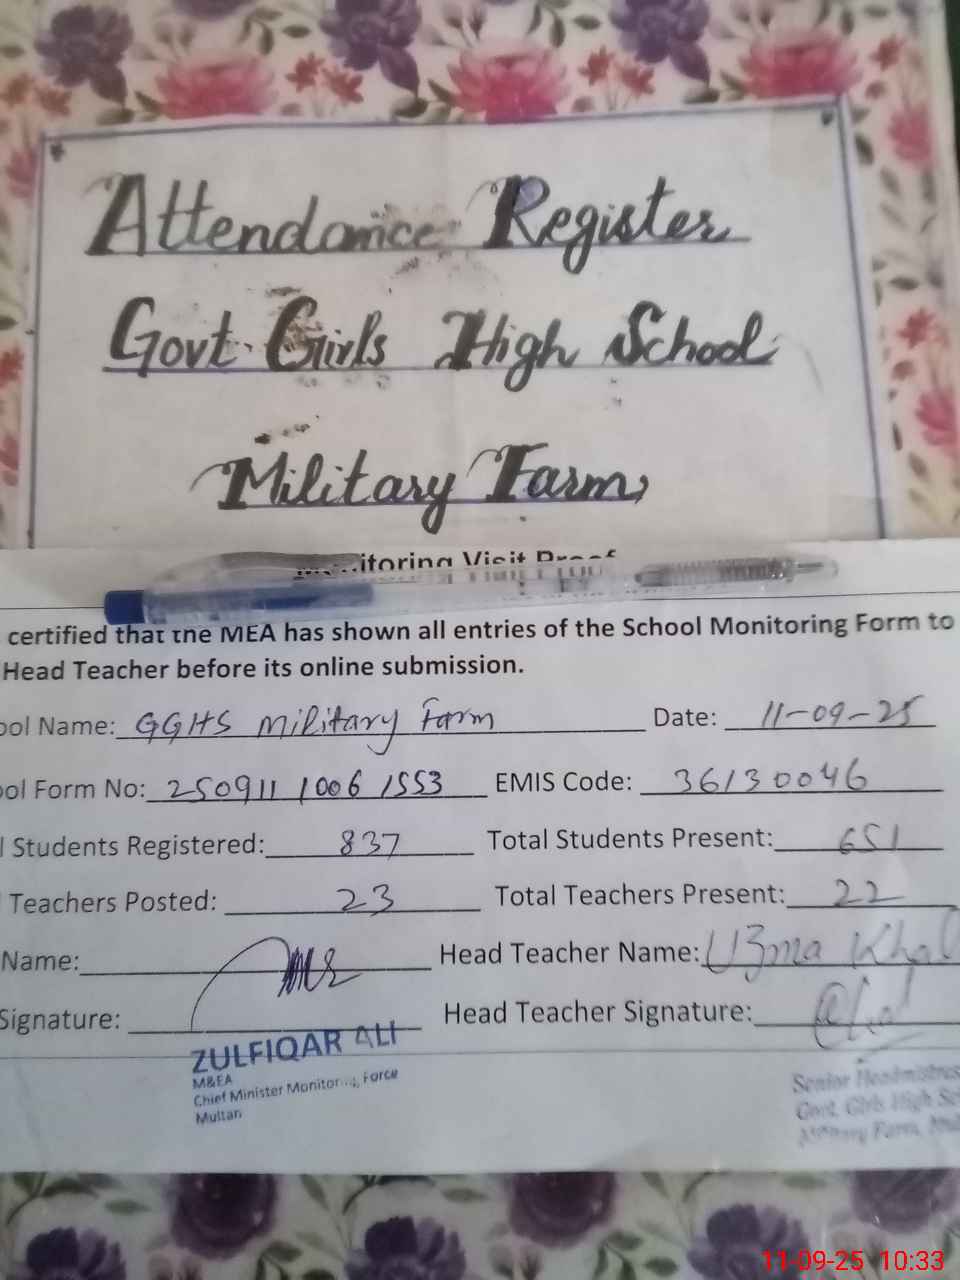 Attendance Register
Govt. Girls High School
Military Farm,
Monitoring Visit Proof
certified that the MEA has shown all entries of the School Monitoring Form to
Head Teacher before its online submission.
ool Name: GGHS Military Farm Date: 11-09-25
ool Form No: 250911 1006 1553 EMIS Code: 36130046
l Students Registered: 837 Total Students Present: 651
Teachers Posted: 23 Total Teachers Present: 22
Name: Head Teacher Name: Uzma Khal
Signature: Head Teacher Signature:
ZULFIQAR ALI
M&EA
Chief Minister Monitoring Force
Multan
Senior Headmistres
Govt. Girls High Sc
Military Farm, Mul
11-09-25 10:33